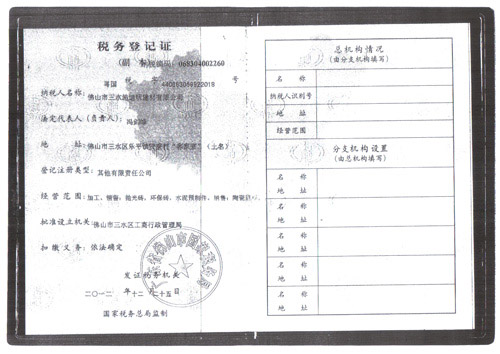 税务登记证
(副 本)
068304002260
粤国 税 字 440683059922019 号
纳税人名称:
佛山市三水
有限公司
法定代表人(负责人):
地 址:
佛山市三水区乐平镇
登记注册类型:
其他有限责任公司
经营范围:
加工、销售:抛光砖、环保砖、水泥预制件、销售:陶瓷
批准设立机关:
佛山市三水区工商行政管理局
扣缴义务:依法确定
发证税务机关
二〇一二 年 十二 月 二十五 日
国家税务总局监制
总机构情况
(由分支机构填写)
名 称
纳税人识别号
地 址
经营范围
分支机构设置
(由总机构填写)
名 称
地 址
名 称
地 址
名 称
地 址
名 称
地 址
名 称
地 址